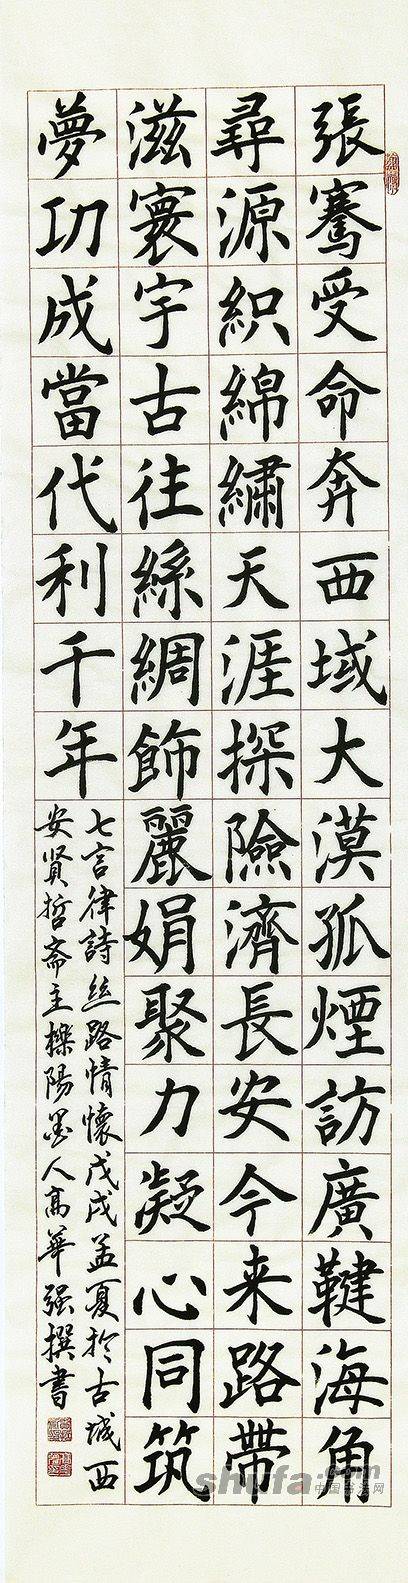 張騫受命奔西域大漠孤煙訪廣鞬海角
尋源織綿繡天涯探險濟長安今来路帶
滋寰宇古往絲綢飾麗娟聚力凝心同筑
夢功成當代利千年
七言律詩丝路情懷戊戌孟夏於古城西
安贤哲斋主櫟陽墨人高華强撰書
shufa.com
中国书法网